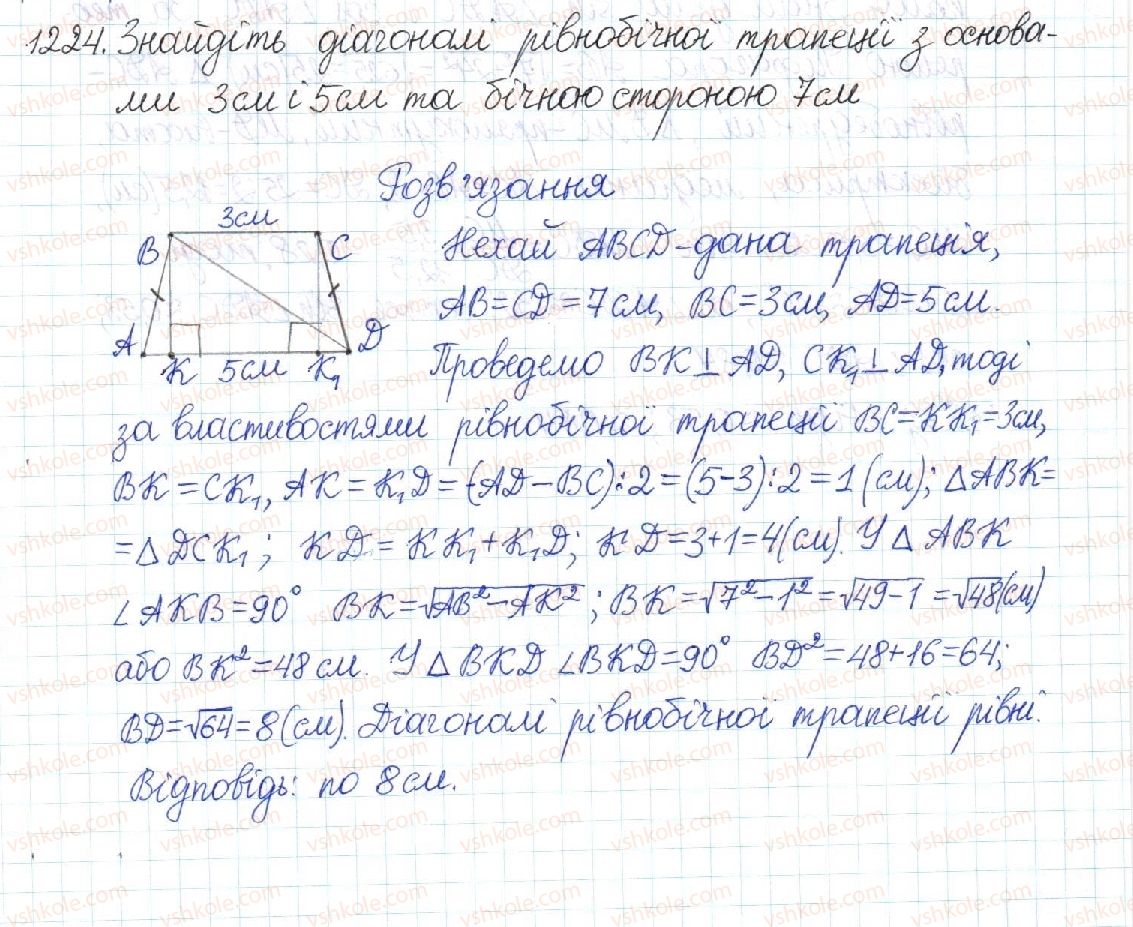 1224. Знайдіть діагоналі рівнобічної трапеції з основа-
ми 3см і 5см та бічною стороною 7см
Розв'язання
3см
B C
A K 5см K₁ D
Нехай ABCD-дана трапеція,
AB=CD=7см, BC=3см, AD=5см.
Проведемо BK⊥AD, CK₁⊥AD, тоді
за властивостями рівнобічної трапеції BC=KK₁=3см,
BK=CK₁, AK=K₁D=(AD-BC):2=(5-3):2=1(см); △ABK=
=△DCK₁; KD=KK₁+K₁D; KD=3+1=4(см). У △ABK
∠AKB=90° BK=√AB²-AK²; BK=√7²-1²=√49-1=√48(см)
або BK²=48см. У △BKD ∠BKD=90° BD²=48+16=64;
BD=√64=8(см). Діагоналі рівнобічної трапеції рівні.
Відповідь: по 8см.
vshkole.com